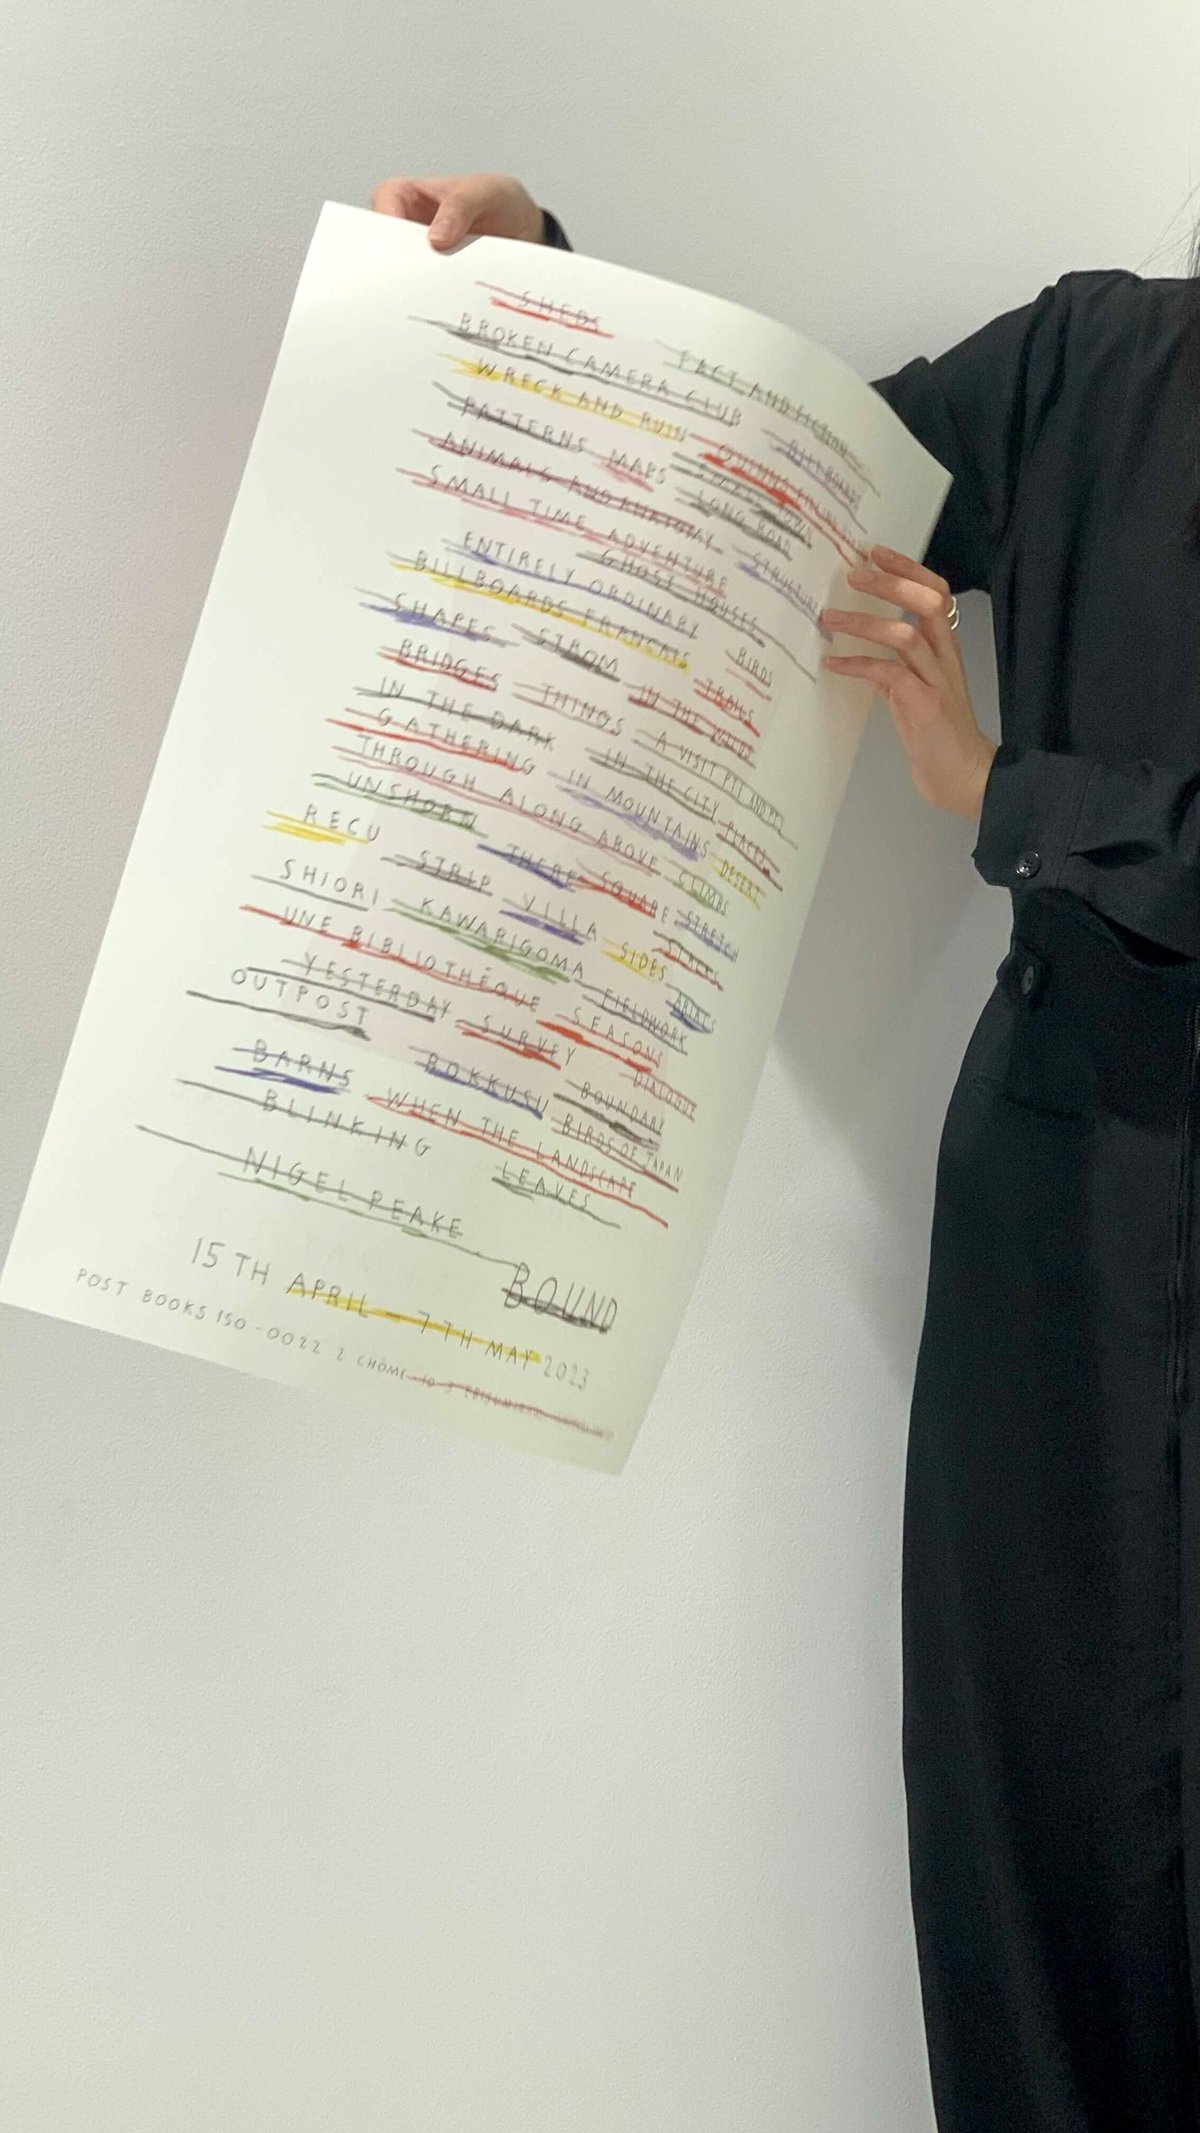 SHEDS
BROKEN CAMERA CLUB FACT AND FICTION
WRECK AND RUIN BILLBOARDS
PATTERNS MAPS QUINNS
ANIMALS AND ANATOMY LONG ROAD
SMALL TIME ADVENTURE
ENTIRELY ORDINARY GHOST HOUSES
BILLBOARDS FRANCAIS BIRDS
SHAPES STROM TRAILS
BRIDGES THINGS IN THE WILDS
IN THE DARK A VISIT PT1 AND PT2
GATHERING IN THE CITY PLACES
THROUGH ALONG ABOVE IN MOUNTAINS DESERT
UNSHORN CLIMBS
RECU THERE SQUARE STRETCH
SHIORI STRIP VILLA SIDES STACKS
UNE BIBLIOTHÉQUE KAWARIGOMA FIELDWORK
YESTERDAY SEASONS
OUTPOST SURVEY DIALOGUE
BARNS BOKKUSU BOUNDARY
BLINKING WHEN THE LANDSCAPE BIRDS OF JAPAN
LEAVES
NIGEL PEAKE
BOUND
15TH APRIL - 7TH MAY 2023
POST BOOKS 150-0022 2 CHOME